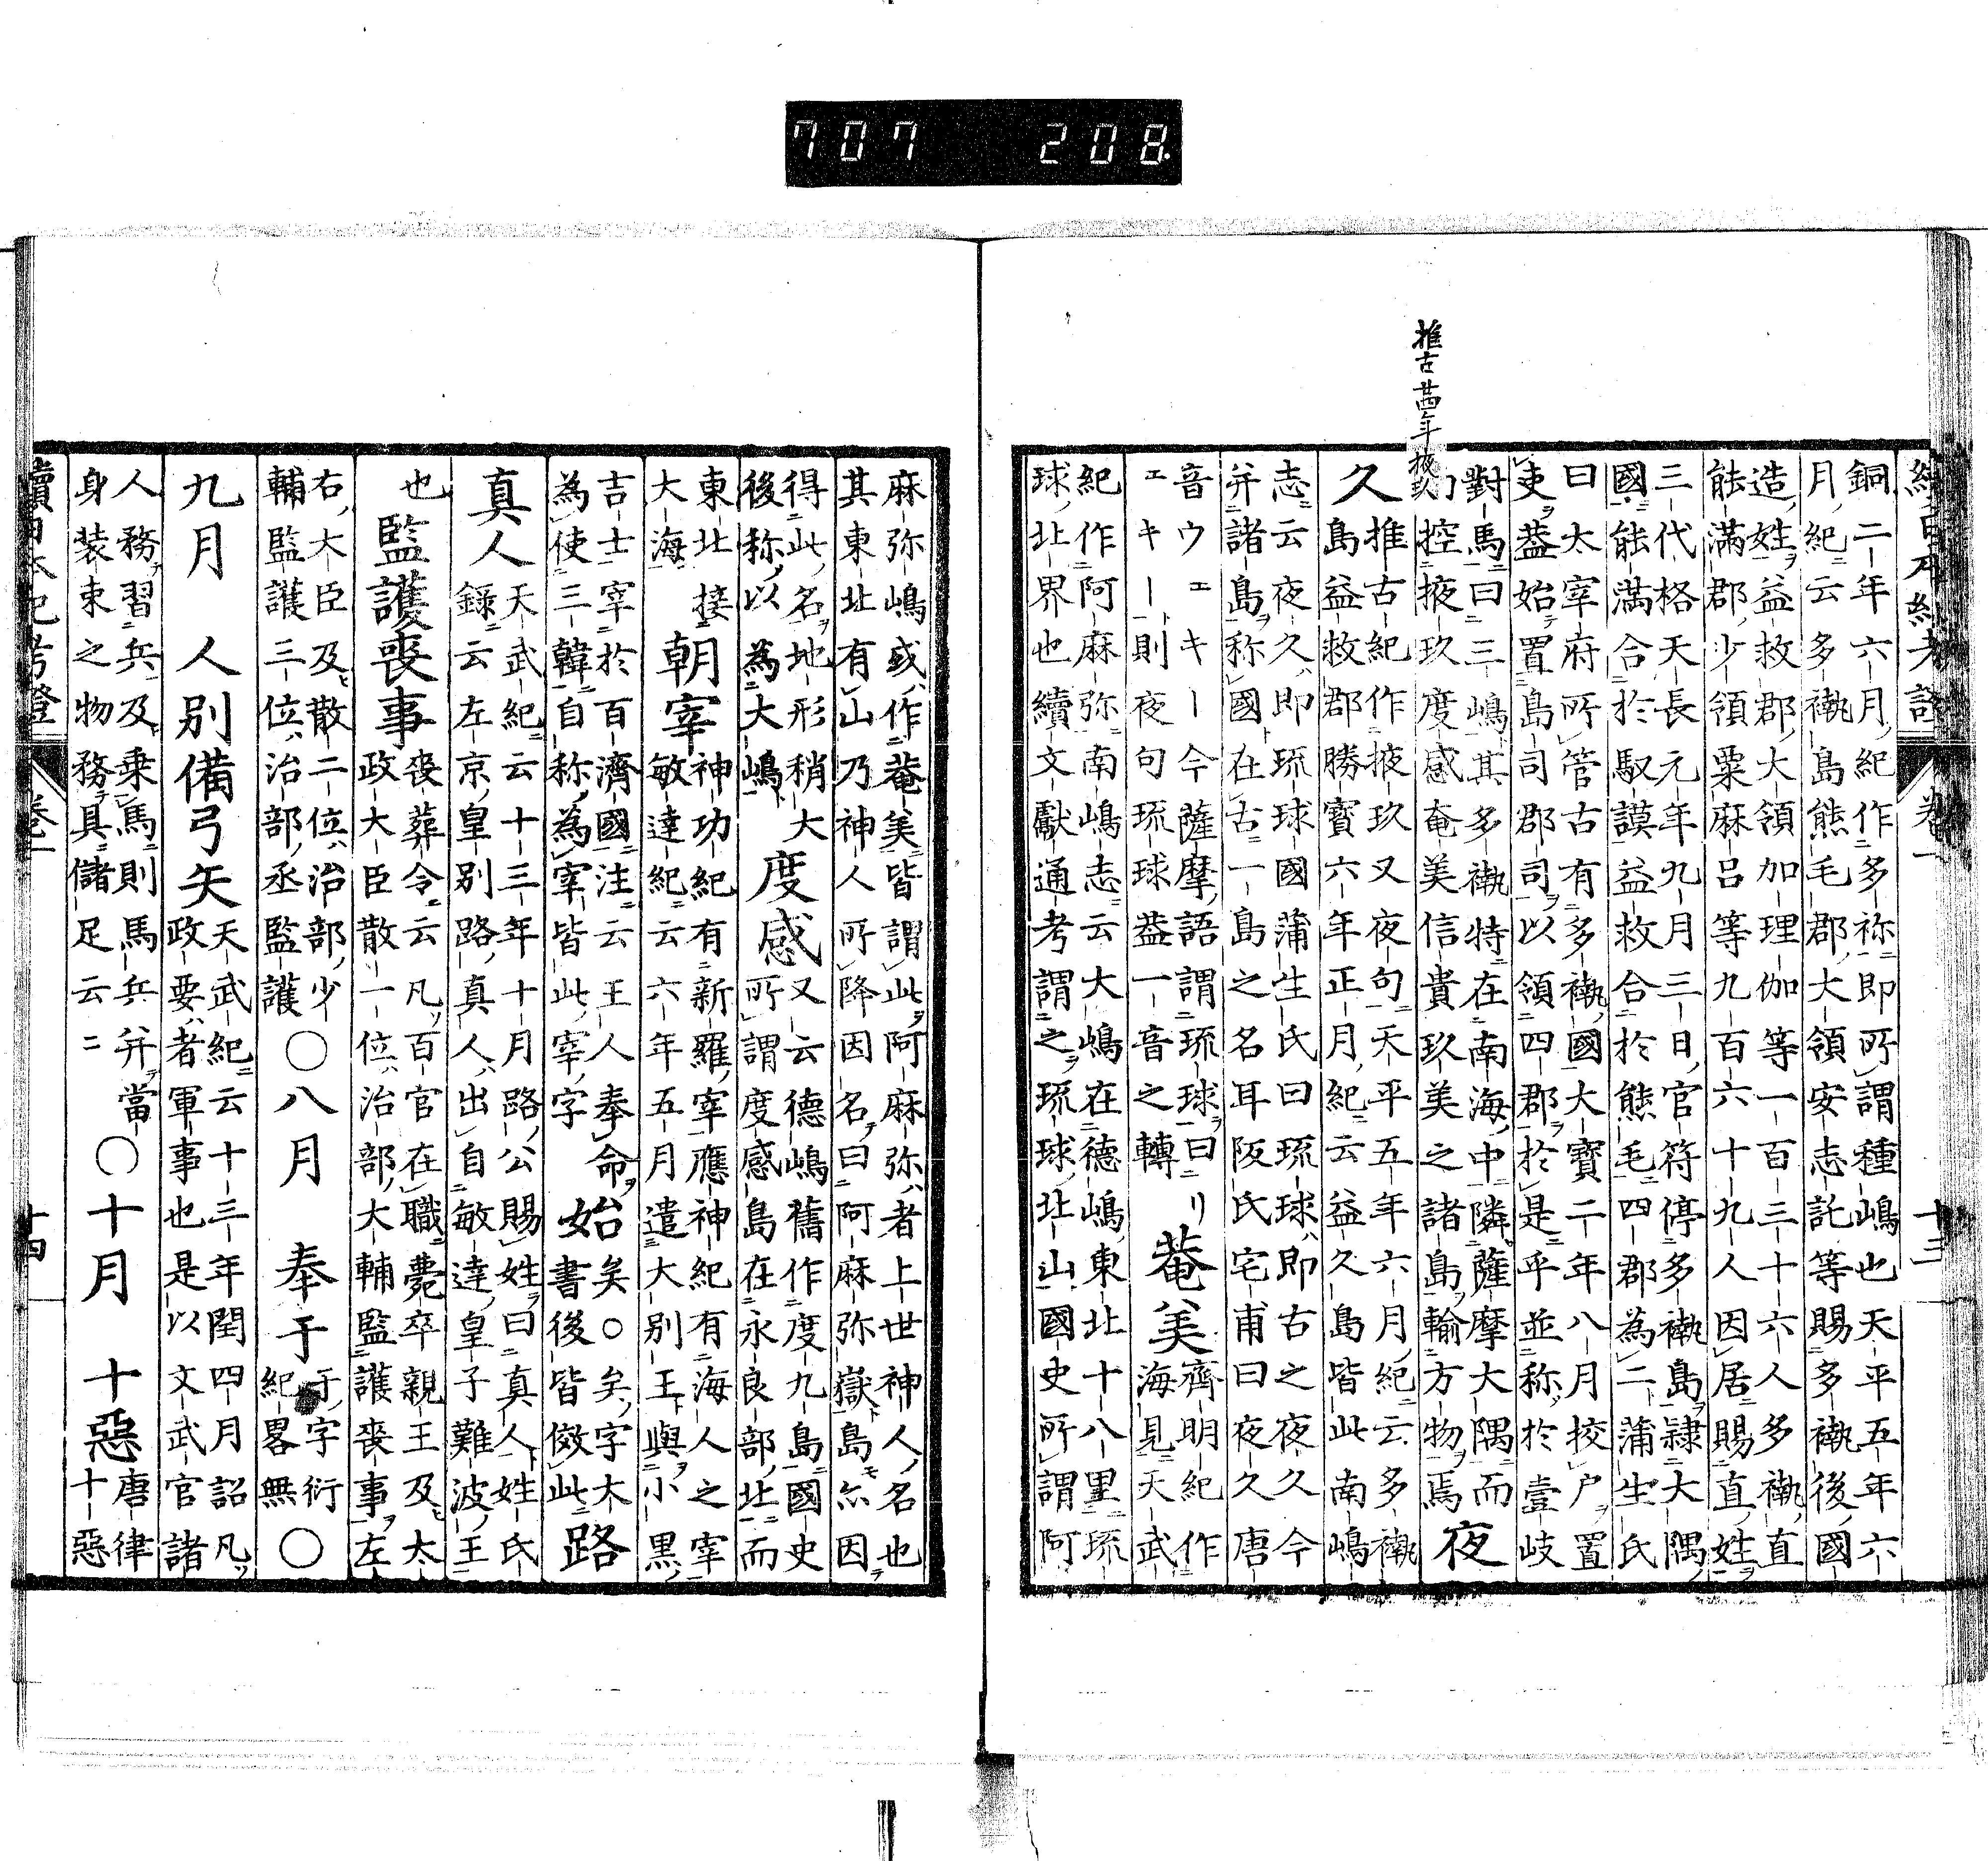 707 208
推古廿四年掖玖
續日本紀考證 卷一 十三
銅二年六月紀作多祢即所謂種嶋也天平五年六
月紀云多褹島熊毛郡大領安志託等賜多褹後國
造姓益救郡大領加理伽等一百三十六人多褹直
能滿郡少領粟麻呂等九百六十九人因居賜直姓
三代格天長元年九月三日官符停多褹島隷大隅
國能滿合於馭謨益救合於熊毛四郡為二蒲生氏
曰太宰府所管古有多褹國大寶二年八月挍戶置
吏蓋始置島司郡司以領四郡於是乎並称於壹岐
對馬曰三嶋其多褹特在南海中隣薩摩大隅而
控掖玖度感奄美信貴玖美之諸島輸方物焉 夜
久 推古紀作掖玖又夜句天平五年六月紀云多褹
島益救郡勝寶六年正月紀云益久島皆此南嶋
志云夜久即琉球國蒲生氏曰琉球即古之夜久今
并諸島称國在古一島之名耳阪氏宅甫曰夜久唐
音ウヱキー今薩摩語謂琉球曰リ
ヱキー則夜句琉球蓋一音之轉
菴美 齊明紀作海見天武
紀作阿麻弥南嶋志云大嶋在德嶋東北十八里琉
球北界也續文獻通考謂之琉球北山國史所謂阿
麻弥嶋或作菴美皆謂此阿麻弥者上世神人名也
其東北有山乃神人所降因名曰阿麻弥嶽島亦因
得此名地形稍大
後称以為大嶋
度感 又云德嶋舊作度九島國史
所謂度感島在永良部北而
東北接
大海
朝宰 神功紀有新羅宰應神紀有海人之宰
敏達紀云六年五月遣大別王與小黒
吉士宰於百濟國注云王人奉命
為使三韓自称為宰皆此宰字
始 矣○矣字大
書後皆倣此
路
真人 天武紀云十三年十月路公賜姓曰真人姓氏
錄云左京皇別路真人出自敏達皇子難波王
也 監護喪事 喪葬令云凡百官在職薨卒親王及太
政大臣散一位治部大輔監護喪事左
右大臣及散二位治部少
輔監護三位治部丞監護
○八月 奉于 于字衍
紀畧無
○
九月 人別備弓矢 天武紀云十三年閏四月詔凡
政要者軍事也是以文武官諸
人務習兵及乗馬則馬兵并當
身装束之物務具儲足云〻
○十月 十惡 唐律
十惡
續日本紀考證 卷一 十四